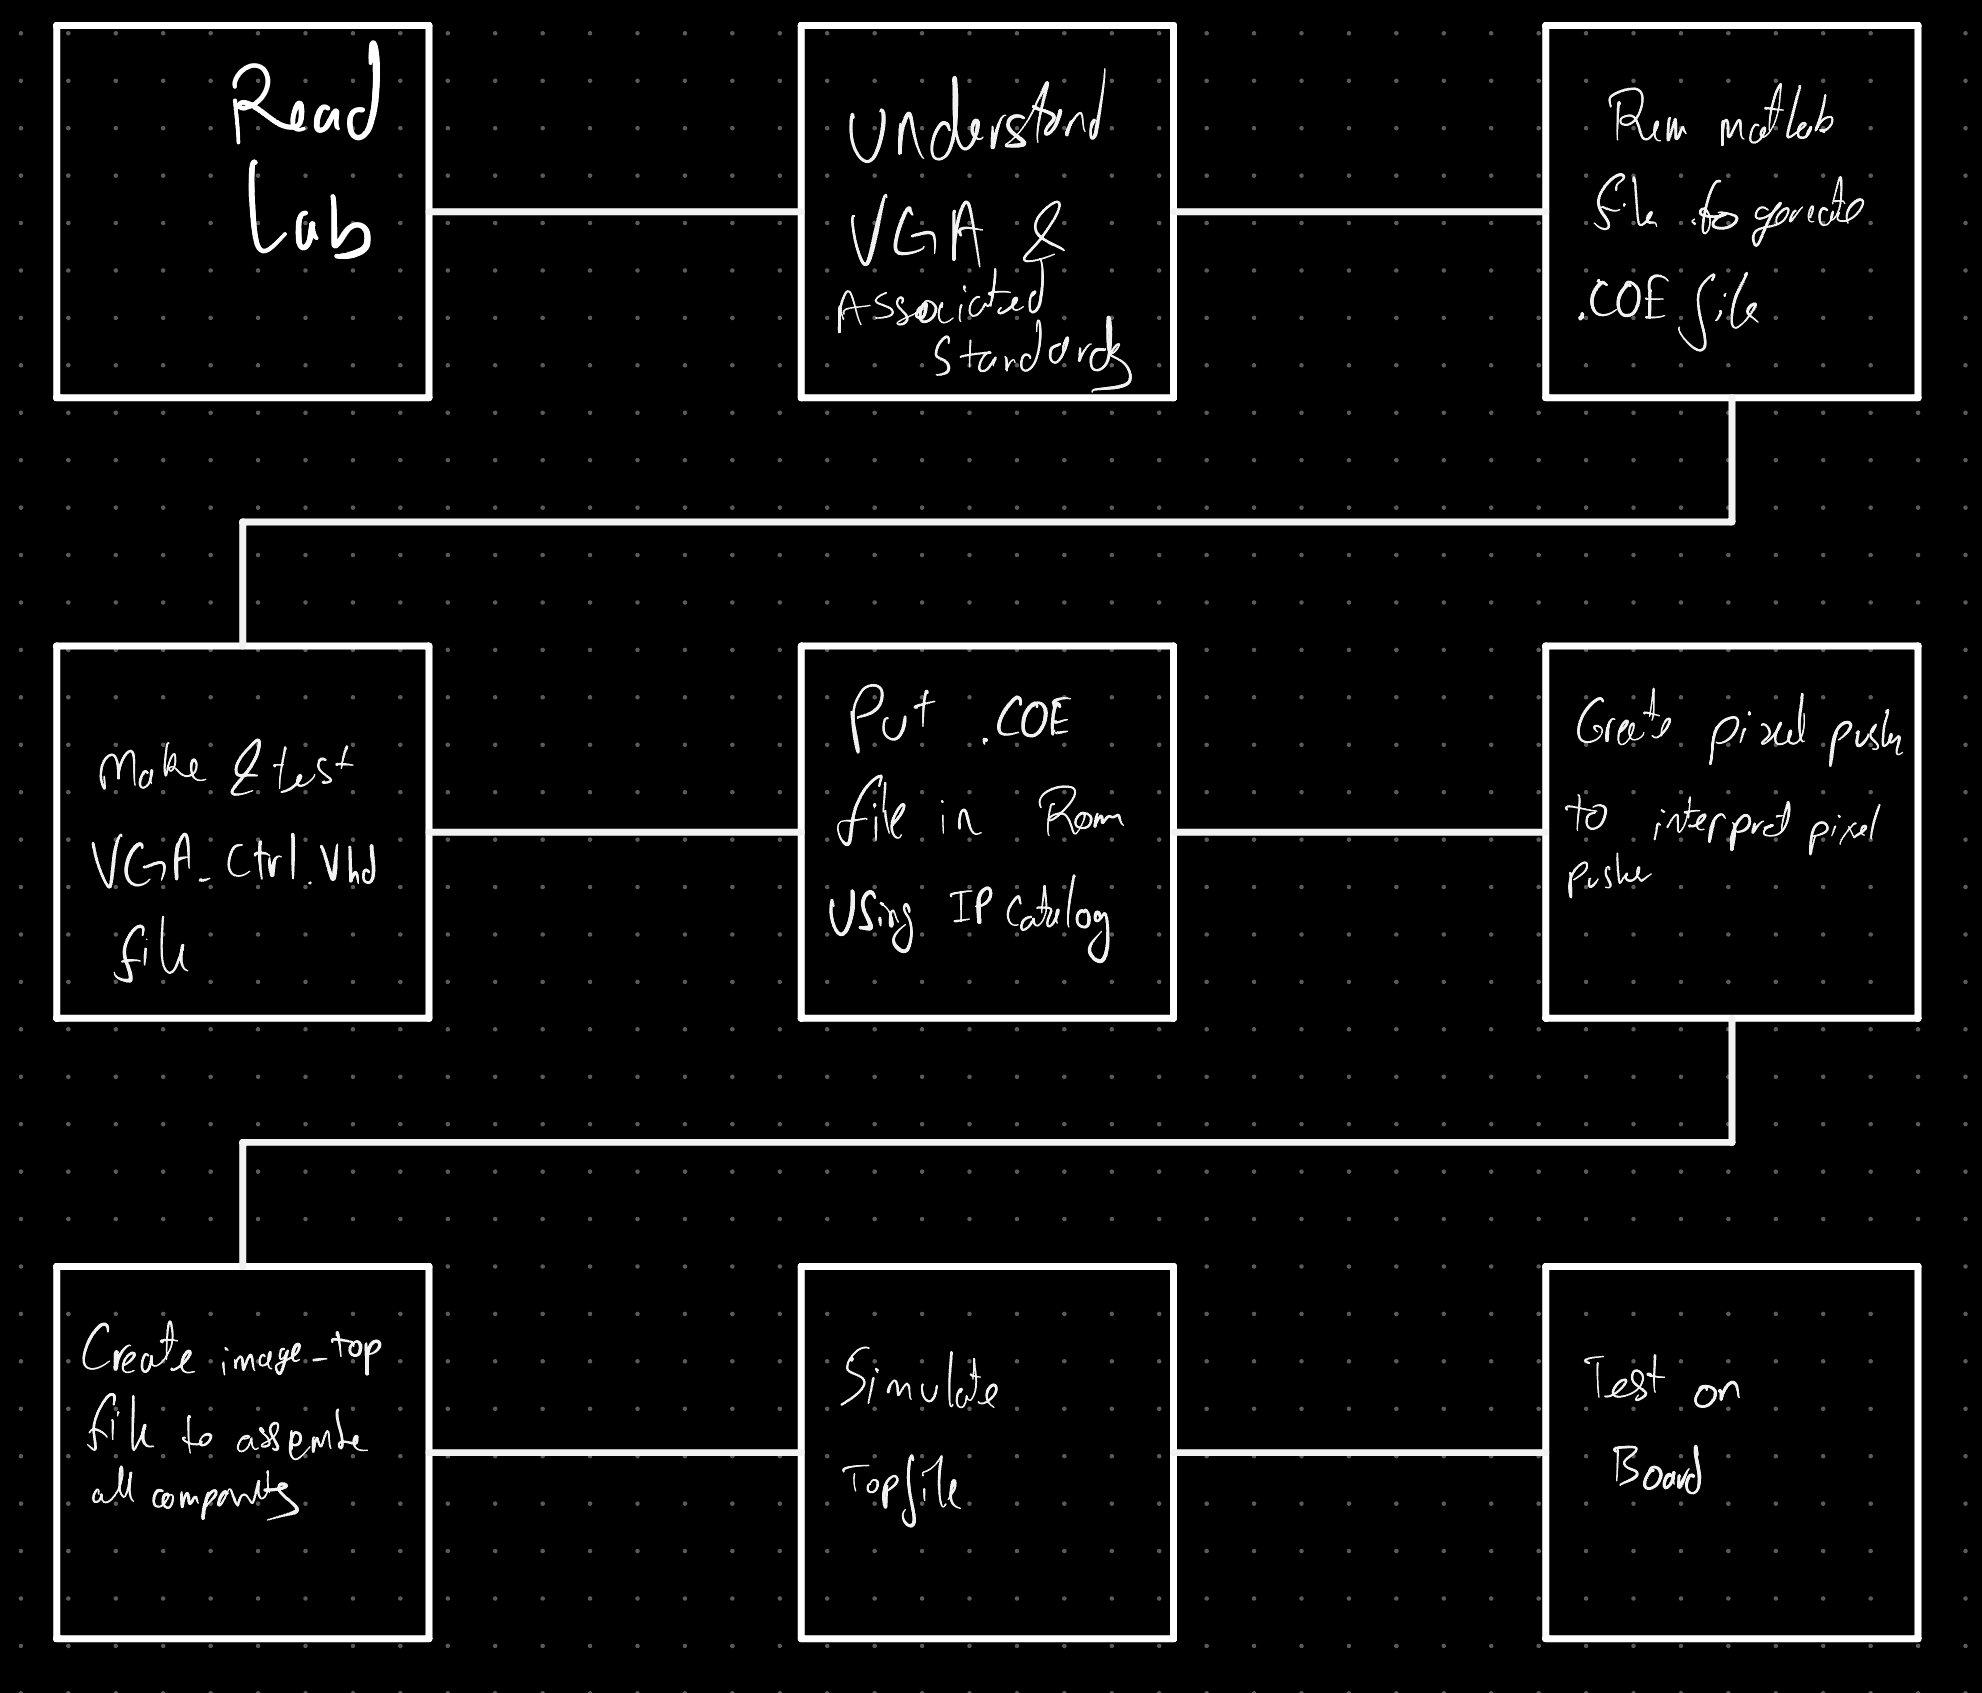 Read
Lab
Understand
VGA &
Associated
Standards
Run matlab
file to generate
.COE file
Make & test
VGA_Ctrl.vhd
file
Put .COE
file in Rom
Using IP Catalog
Create pixel pusher
to interpret pixel
pusher
Create image_top
file to assemble
all components
Simulate
Topfile
Test on
Board